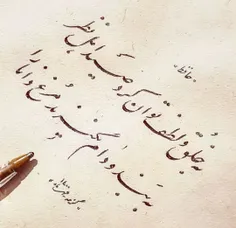 حافظ
به خلق و لطف توان کرد صید اهل نظر
به بند و دام نگیرند مرغ دانا را